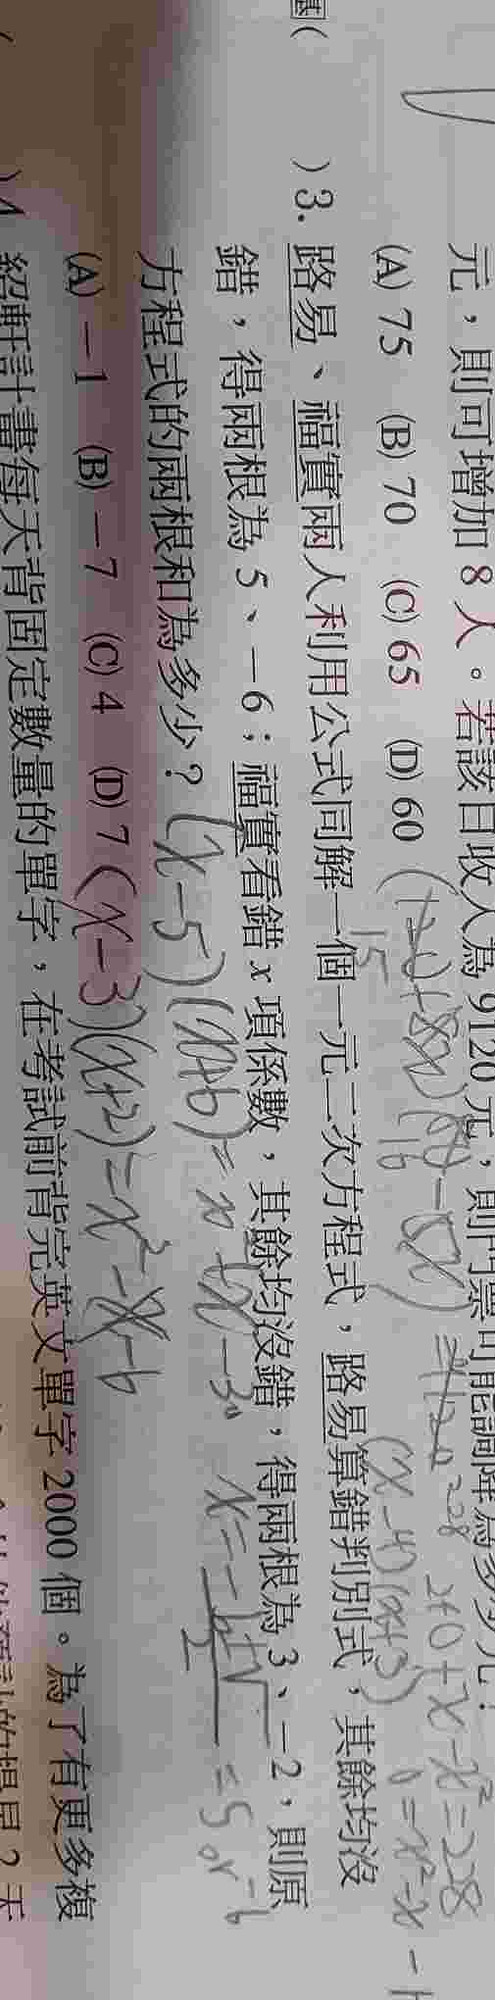 元，則可增加 8 人。若該日收入為 9120 元，則門票可能調降為多少元？
(A) 75 (B) 70 (C) 65 (D) 60
)3. 路易、福寶兩人利用公式同解一個一元二次方程式，路易算錯判別式，其餘均沒
錯，得兩根為 5、−6；福寶看錯 x 項係數，其餘均沒錯，得兩根為 3、−2，則原
方程式的兩根和為多少？ (x-5)(x+6)=
(A) −1 (B) −7 (C) 4 (D) 7 (x-3)(x+2)=x²-x-6
)4. 紹軒計畫每天背固定數量的單字，在考試前背完英文單字 2000 個。為了有更多複
240+x-x²=228
0=x²-x-1
(x-4)(x+3)
-30
=5 or -6